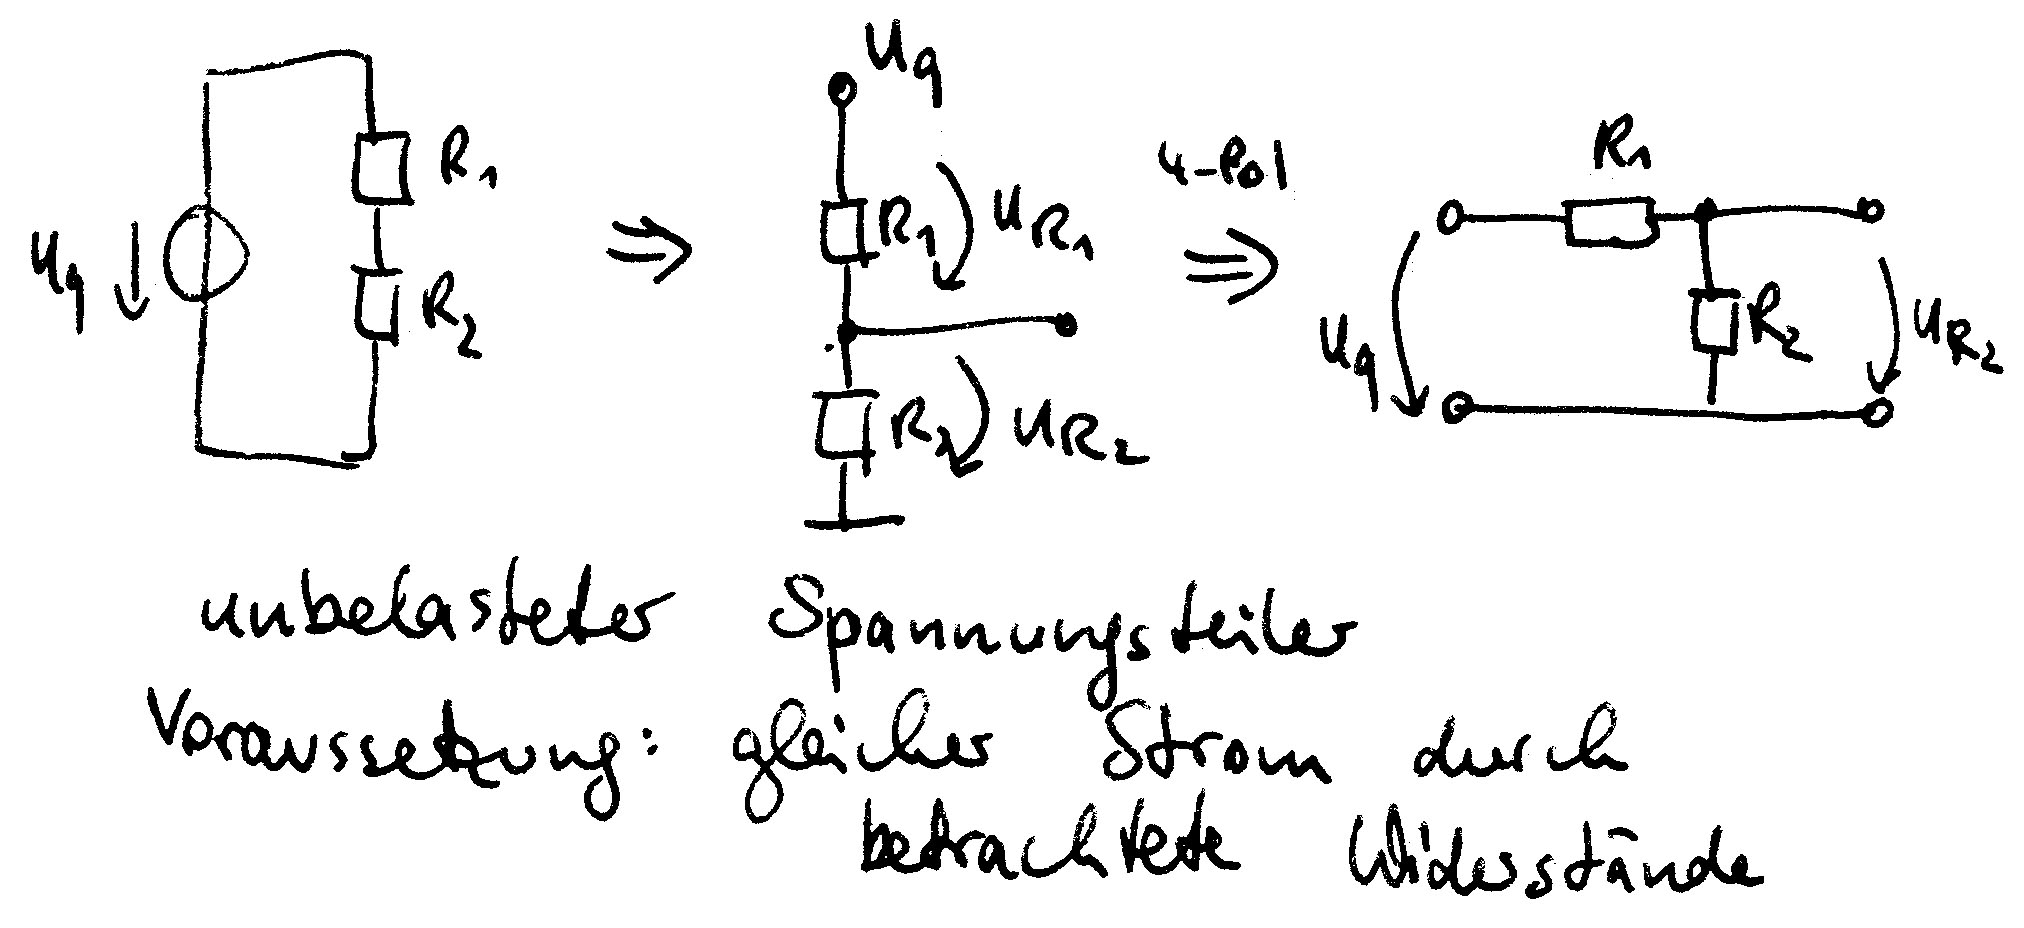 Uq
R1
R2
Uq
⇒
Uq
R1
UR1
R2
UR2
4-Pol
⇒
R1
Uq
R2
UR2
unbelasteter Spannungsteiler
Voraussetzung: gleicher Strom durch
betrachtete Widerstände